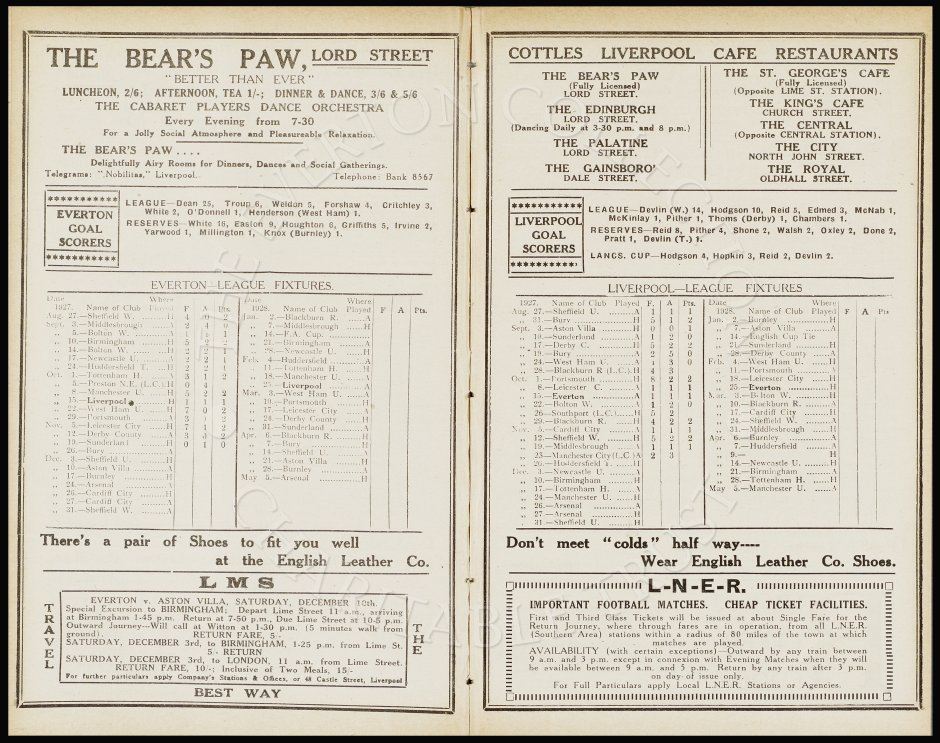 THE BEAR'S PAW, LORD STREET
"BETTER THAN EVER"
LUNCHEON, 2/6; AFTERNOON, TEA 1/-; DINNER & DANCE, 3/6 & 5/6
THE CABARET PLAYERS DANCE ORCHESTRA
Every Evening from 7-30
For a Jolly Social Atmosphere and Pleasureable Relaxation.
THE BEAR'S PAW ....
Delightfully Airy Rooms for Dinners, Dances and Social Gatherings.
Telegrams: "Nobilitas," Liverpool. Telephone: Bank 8567
EVERTON GOAL SCORERS
LEAGUE—Dean 25, Troup 6, Weldon 5, Forshaw 4, Critchley 3,
White 2, O'Donnell 1, Henderson (West Ham) 1.
RESERVES—White 16, Easton 9, Houghton 6, Griffiths 5, Irvine 2,
Yarwood 1, Millington 1, Knox (Burnley) 1.
EVERTON—LEAGUE FIXTURES.
Date Where
1927. Name of Club Played F A Pts.
Aug. 27.—Sheffield W. H
Sept. 3.—Middlesbrough A 2 4 0
„ 5.—Bolton W. A
„ 10.—Birmingham H 5 2 2
„ 14.—Bolton W. H 2 2 1
„ 17.—Newcastle U. A 2 2 1
„ 24.—Huddersfield T. H 2 2 1
Oct. 1.—Tottenham H. A 3 1 2
„ 5.—Preston N.E. (L.C.) H 0 4
„ 8.—Manchester U. H 5 2 2
„ 15.—Liverpool H 1 1 1
„ 22.—West Ham U. H 7 0 2
„ 29.—Portsmouth A
Nov. 5.—Leicester City H 7 1 2
„ 12.—Derby County A 3 2
„ 19.—Sunderland H 0 1 0
„ 26.—Bury A
Dec. 3.—Sheffield U. H
„ 10.—Aston Villa A
„ 17.—Burnley H
„ 24.—Arsenal A
„ 26.—Cardiff City H
„ 27.—Cardiff City A
„ 31.—Sheffield W. A
Date Where
1928. Name of Club Played F A Pts.
Jan. 2.—Blackburn R. A
„ 7.—Middlesbrough H
„ 14.—F.A. Cup.
„ 21.—Birmingham A
„ 28.—Newcastle U. H
Feb. 4.—Huddersfield A
„ 11.—Tottenham H. H
„ 18.—Manchester U. A
„ 25.—Liverpool A
Mar. 3.—West Ham U. A
„ 10.—Portsmouth H
„ 17.—Leicester City A
„ 24.—Derby County H
„ 31.—Sunderland A
Apr. 6.—Blackburn R. H
„ 7.—Bury H
„ 14.—Sheffield U. A
„ 21.—Aston Villa H
„ 28.—Burnley A
May 5.—Arsenal H
There's a pair of Shoes to fit you well
at the English Leather Co.
LMS
TRAVEL
EVERTON v. ASTON VILLA, SATURDAY, DECEMBER 10th.
Special Excursion to BIRMINGHAM; Depart Lime Street 11 a.m., arriving
at Birmingham 1-45 p.m. Return at 7-50 p.m., Due Lime Street at 10-5 p.m.
Outward Journey—Will call at Witton at 1-30 p.m. (5 minutes walk from
ground). RETURN FARE, 5/-
SATURDAY, DECEMBER 3rd, to BIRMINGHAM, 1-25 p.m. from Lime St.
5/- RETURN
SATURDAY, DECEMBER 3rd, to LONDON, 11 a.m. from Lime Street.
RETURN FARE, 10/-; Inclusive of Two Meals, 15/-
For further particulars apply Company's Stations & Offices, or 48 Castle Street, Liverpool
THE
BEST WAY
COTTLES LIVERPOOL CAFE RESTAURANTS
THE BEAR'S PAW
(Fully Licensed)
LORD STREET.
THE EDINBURGH
LORD STREET.
(Dancing Daily at 3-30 p.m. and 8 p.m.)
THE PALATINE
LORD STREET.
THE GAINSBORO'
DALE STREET.
THE ST. GEORGE'S CAFE
(Fully Licensed)
(Opposite LIME ST. STATION).
THE KING'S CAFE
CHURCH STREET.
THE CENTRAL
(Opposite CENTRAL STATION).
THE CITY
NORTH JOHN STREET.
THE ROYAL
OLDHALL STREET.
LIVERPOOL GOAL SCORERS
LEAGUE—Devlin (W.) 14, Hodgson 10, Reid 5, Edmed 3, McNab 1,
McKinlay 1, Pither 1, Thoms (Derby) 1, Chambers 1.
RESERVES—Reid 8, Pither 4, Shone 2, Walsh 2, Oxley 2, Done 2,
Pratt 1, Devlin (T.) 1.
LANCS. CUP—Hodgson 4, Hopkin 3, Reid 2, Devlin 2.
LIVERPOOL—LEAGUE FIXTURES
1927. Name of Club Played F. A. Pts.
Aug. 27.—Sheffield U. A 1 1 1
„ 31.—Bury H 5 1 2
Sept. 3.—Aston Villa H 0 0 1
„ 10.—Sunderland A 1 2 0
„ 17.—Derby C. H 5 2 2
„ 19.—Bury A 2 5 0
„ 24.—West Ham U. A 1 3 0
„ 28.—Blackburn R (L.C.) H 4 3
Oct. 1.—Portsmouth H 8 2 2
„ 8.—Leicester C. A 1 1 1
„ 15.—Everton A 1 1 1
„ 22.—Bolton W. A 1 2 0
„ 26.—Southport (L.C.) H 5 2
„ 29.—Blackburn R. H 4 2 2
Nov. 5.—Cardiff City A 1 1 1
„ 12.—Sheffield W. H 5 2 2
„ 19.—Middlesbrough A 1 1 1
„ 23—Manchester City (L.C.) A 2 3
„ 26.—Huddersfield T. H
Dec. 3.—Newcastle U. A
„ 10.—Birmingham H
„ 17.—Tottenham H. A
„ 24.—Manchester U. H
„ 26.—Arsenal A
„ 27.—Arsenal H
„ 31.—Sheffield U. H
Date Where
1928. Name of Club Played F A Pts
Jan. 2.—Burnley H
„ 7.—Aston Villa A
„ 14.—English Cup Tie
„ 21.—Sunderland H
„ 28.—Derby County A
Feb. 4.—West Ham U. H
„ 11.—Portsmouth A
„ 18.—Leicester City H
„ 25.—Everton H
Mar. 3.—Bolton W. H
„ 10.—Blackburn R. A
„ 17.—Cardiff City H
„ 24.—Sheffield W. A
„ 31.—Middlesbrough H
Apr. 6.—Burnley A
„ 7.—Huddersfield A
„ 9.— H
„ 14.—Newcastle U. H
„ 21.—Birmingham A
„ 28.—Tottenham H. H
May 5.—Manchester U. A
Don't meet "colds" half way----
Wear English Leather Co. Shoes.
L-N-E-R.
IMPORTANT FOOTBALL MATCHES. CHEAP TICKET FACILITIES.
First and Third Class Tickets will be issued at about Single Fare for the
Return Journey, where through fares are in operation, from all L.N.E.R.
(Southern Area) stations within a radius of 80 miles of the town at which
matches are played.
AVAILABILITY (with certain exceptions)—Outward by any train between
9 a.m. and 3 p.m. except in connexion with Evening Matches when they will
be available between 9 a.m. and 5 p.m. Return by any train after 3 p.m.
on day of issue only.
For Full Particulars apply Local L.N.E.R. Stations or Agencies.